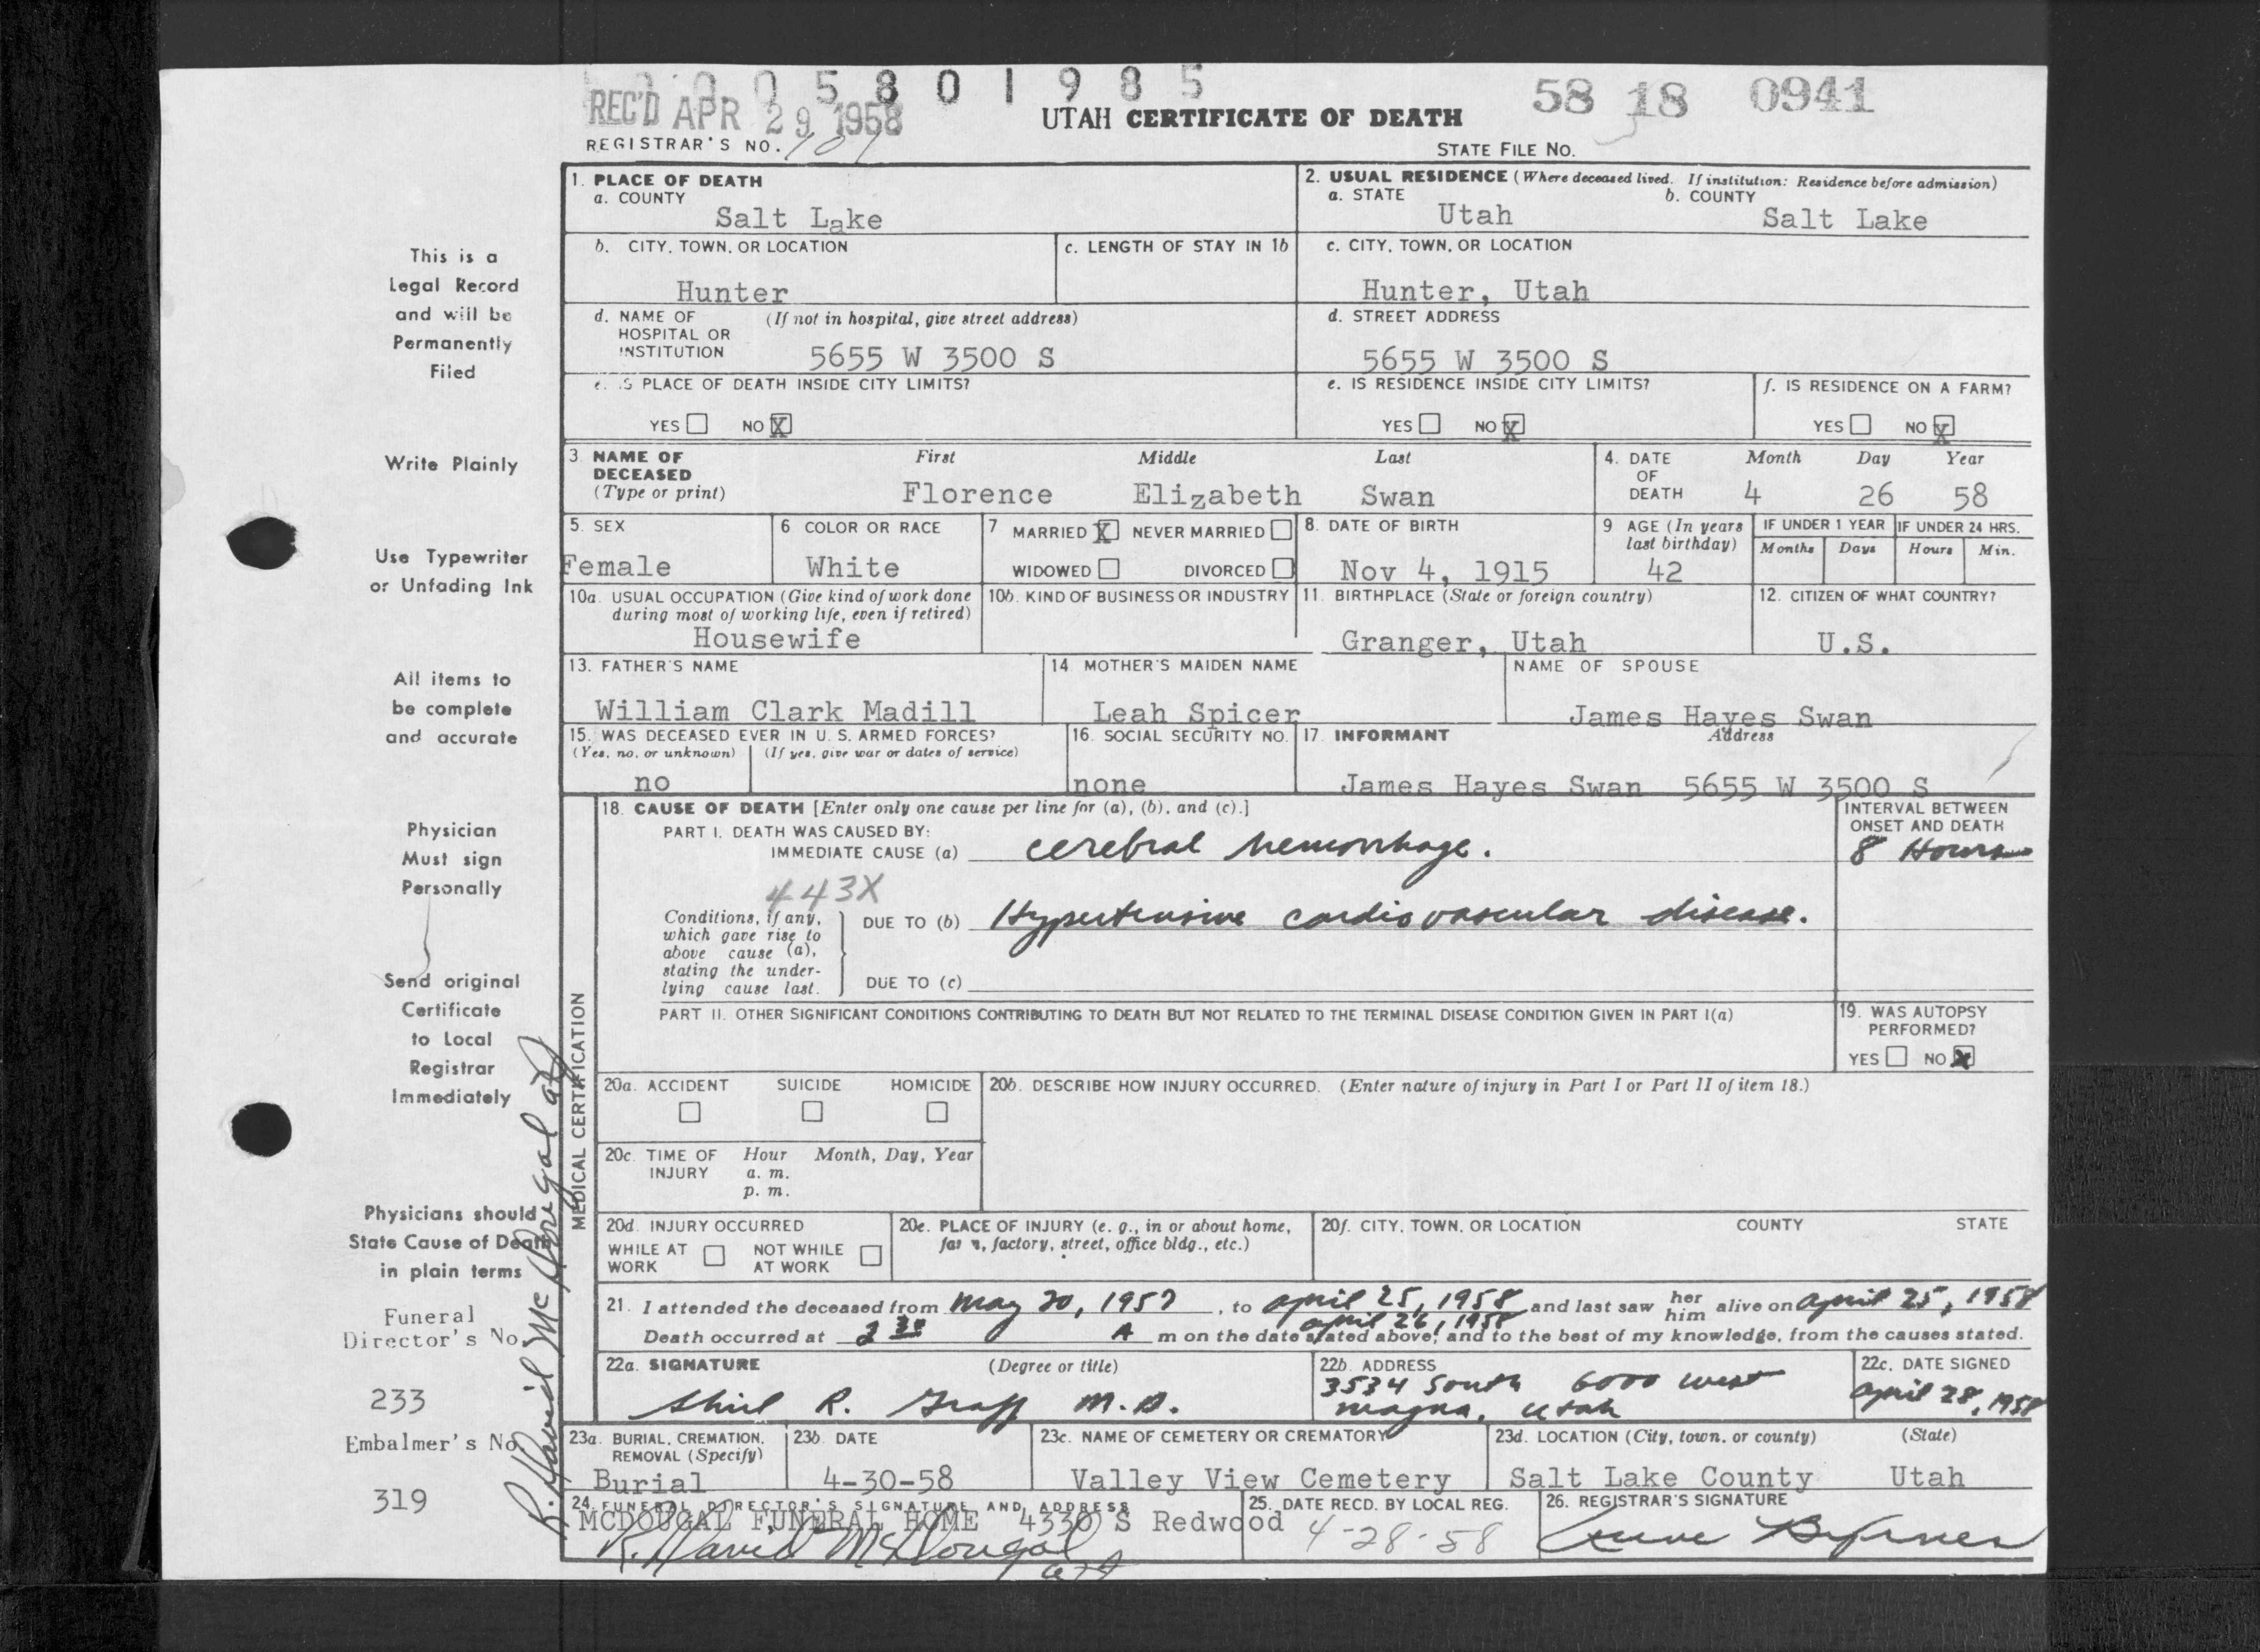 0 0 0 5 8 0 1 9 8 5
REC'D APR 29 1958
UTAH CERTIFICATE OF DEATH
58 18 0941
REGISTRAR'S NO. 707
STATE FILE NO.
This is a
Legal Record
and will be
Permanently
Filed
Write Plainly
Use Typewriter
or Unfading Ink
All items to
be complete
and accurate
Physician
Must sign
Personally
Send original
Certificate
to Local
Registrar
Immediately
Physicians should
State Cause of Death
in plain terms
Funeral
Director's No.
233
Embalmer's No.
319
R. David McDougal
1. PLACE OF DEATH
a. COUNTY
Salt Lake
2. USUAL RESIDENCE (Where deceased lived. If institution: Residence before admission)
a. STATE
Utah
b. COUNTY
Salt Lake
b. CITY, TOWN, OR LOCATION
Hunter
c. LENGTH OF STAY IN 1b
c. CITY, TOWN, OR LOCATION
Hunter, Utah
d. NAME OF (If not in hospital, give street address)
HOSPITAL OR
INSTITUTION 5655 W 3500 S
d. STREET ADDRESS
5655 W 3500 S
e. IS PLACE OF DEATH INSIDE CITY LIMITS?
YES NO X
e. IS RESIDENCE INSIDE CITY LIMITS?
YES NO X
f. IS RESIDENCE ON A FARM?
YES NO X
3. NAME OF First Middle Last
DECEASED
(Type or print) Florence Elizabeth Swan
4. DATE Month Day Year
OF
DEATH 4 26 58
5. SEX
Female
6 COLOR OR RACE
White
7 MARRIED X NEVER MARRIED
WIDOWED DIVORCED
8. DATE OF BIRTH
Nov 4, 1915
9 AGE (In years
last birthday)
42
IF UNDER 1 YEAR
Months Days
IF UNDER 24 HRS.
Hours Min.
10a. USUAL OCCUPATION (Give kind of work done
during most of working life, even if retired)
Housewife
10b. KIND OF BUSINESS OR INDUSTRY
11. BIRTHPLACE (State or foreign country)
Granger, Utah
12. CITIZEN OF WHAT COUNTRY?
U.S.
13. FATHER'S NAME
William Clark Madill
14. MOTHER'S MAIDEN NAME
Leah Spicer
NAME OF SPOUSE
James Hayes Swan
15. WAS DECEASED EVER IN U. S. ARMED FORCES?
(Yes, no, or unknown) (If yes, give war or dates of service)
no
16. SOCIAL SECURITY NO.
none
17. INFORMANT Address
James Hayes Swan 5655 W 3500 S
MEDICAL CERTIFICATION
18. CAUSE OF DEATH [Enter only one cause per line for (a), (b), and (c).]
PART I. DEATH WAS CAUSED BY:
IMMEDIATE CAUSE (a) cerebral hemorrhage.
INTERVAL BETWEEN
ONSET AND DEATH
8 Hours
443X
Conditions, if any,
which gave rise to
above cause (a),
stating the under-
lying cause last.
DUE TO (b) Hypertensive cardiovascular disease.
DUE TO (c)
PART II. OTHER SIGNIFICANT CONDITIONS CONTRIBUTING TO DEATH BUT NOT RELATED TO THE TERMINAL DISEASE CONDITION GIVEN IN PART I(a)
19. WAS AUTOPSY
PERFORMED?
YES NO X
20a. ACCIDENT SUICIDE HOMICIDE
20b. DESCRIBE HOW INJURY OCCURRED. (Enter nature of injury in Part I or Part II of item 18.)
20c. TIME OF Hour Month, Day, Year
INJURY a. m.
p. m.
20d. INJURY OCCURRED
WHILE AT NOT WHILE
WORK AT WORK
20e. PLACE OF INJURY (e. g., in or about home,
farm, factory, street, office bldg., etc.)
20f. CITY, TOWN, OR LOCATION COUNTY STATE
21. I attended the deceased from May 20, 1957, to April 25, 1958 and last saw her him alive on April 25, 1958
April 26, 1958
Death occurred at 2 30 A m on the date stated above, and to the best of my knowledge, from the causes stated.
22a. SIGNATURE (Degree or title)
Shirl R. Graff M.D.
22b. ADDRESS
3534 South 6000 West
Magna, Utah
22c. DATE SIGNED
April 28, 1958
23a. BURIAL, CREMATION,
REMOVAL (Specify)
Burial
23b. DATE
4-30-58
23c. NAME OF CEMETERY OR CREMATORY
Valley View Cemetery
23d. LOCATION (City, town, or county) (State)
Salt Lake County Utah
24. FUNERAL DIRECTOR'S SIGNATURE AND ADDRESS
MCDOUGAL FUNERAL HOME 4330 S Redwood
R. David McDougal
25. DATE RECD. BY LOCAL REG.
4-28-58
26. REGISTRAR'S SIGNATURE